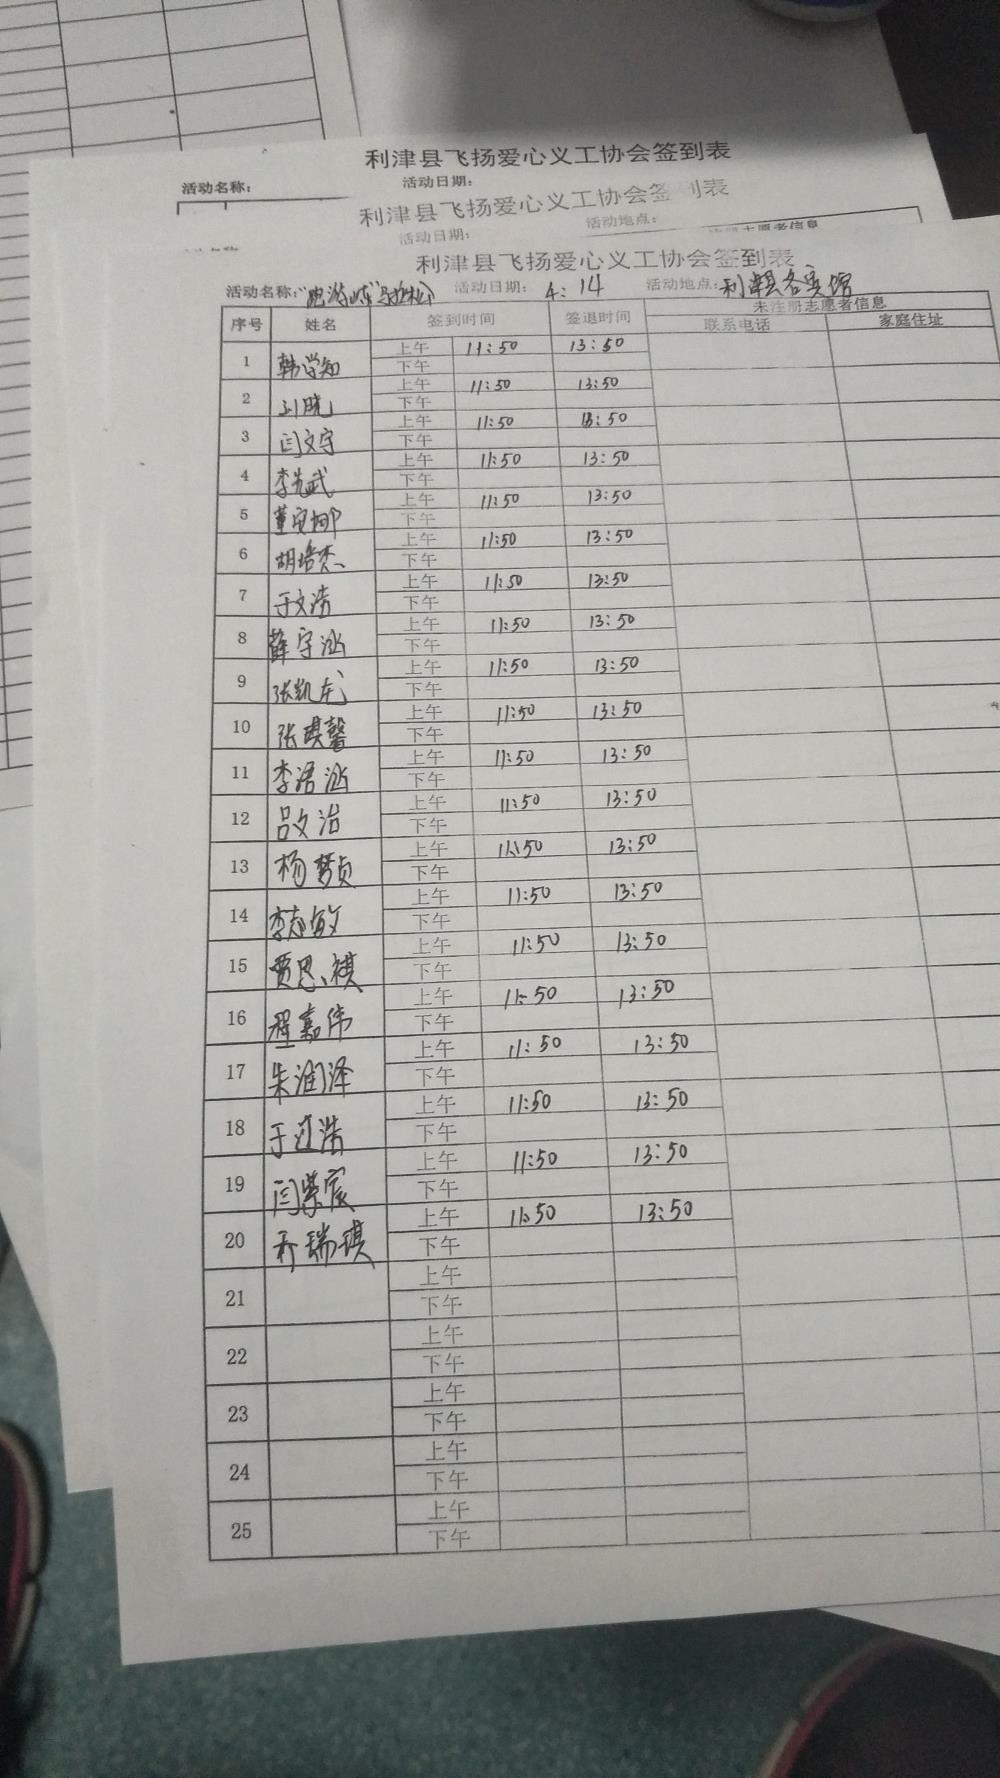 利津县飞扬爱心义工协会签到表
活动名称： 活动日期：
利津县飞扬爱心义工协会签到表
活动日期： 活动地点：
利津县飞扬爱心义工协会签到表
活动名称： 活动日期： 4：14 活动地点：利津县各宾馆
序号 姓名 签到时间 签退时间 未注册志愿者信息
联系电话 家庭住址
1 韩学知 上午 11:50 13:50
下午
2 刘晓 上午 11:50 13:50
下午
3 闫文宇 上午 11:50 13:50
下午
4 李先武 上午 11:50 13:50
下午
5 董安娜 上午 11:50 13:50
下午
6 胡培杰 上午 11:50 13:50
下午
7 于文浩 上午 11:50 13:50
下午
8 薛宇涵 上午 11:50 13:50
下午
9 张凯龙 上午 11:50 13:50
下午
10 张琪馨 上午 11:50 13:50
下午
11 李浯涵 上午 11:50 13:50
下午
12 吕文治 上午 11:50 13:50
下午
13 杨梦贞 上午 11:50 13:50
下午
14 李志敏 上午 11:50 13:50
下午
15 贾思祺 上午 11:50 13:50
下午
16 程嘉伟 上午 11:50 13:50
下午
17 朱润泽 上午 11:50 13:50
下午
18 上午 11:50 13:50
下午
19 闫紫宸 上午 11:50 13:50
下午
20 乔瑞琪 上午 11:50 13:50
下午
21 上午
下午
22 上午
下午
23 上午
下午
24 上午
下午
25 上午
下午